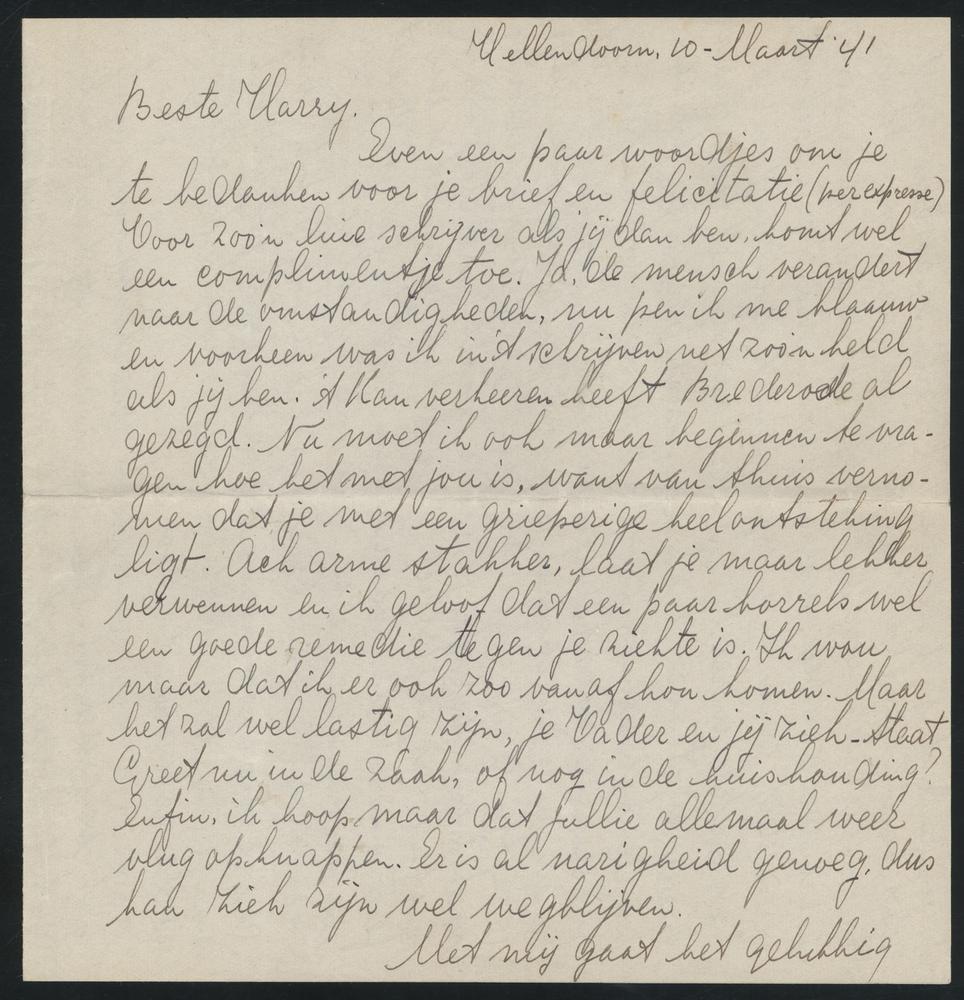 Hellendoorn, 10 - Maart '41
Beste Harry.
Even een paar woordjes om je
te bedanken voor je brief en felicitatie (per expresse)
Voor zoo'n luie schrijver als jij dan ben, komt wel
een complimentje toe. Ja, de mensch verandert
naar de omstandigheden, nu pen ik me blaauw
en voorheen was ik in 't schrijven net zoo'n held
als jij ben. 't Kan verkeeren heeft Brederode al
gezegd. Nu moet ik ook maar beginnen te vra-
gen hoe het met jou is, want van thuis verno-
men dat je met een grieperige keelontsteking
ligt. Ach arme stakker, laat je maar lekker
verwennen en ik geloof dat een paar borrels wel
een goede remedie tegen je ziekte is. Ik wou
maar dat ik er ook zoo vanaf kon komen. Maar
het zal wel lastig zijn, je Vader en jij ziek - Staat
Greet nu in de zaak, of nog in de huishouding?
Enfin, ik hoop maar dat jullie allemaal weer
vlug opknappen. Er is al narigheid genoeg, dus
kan ziek zijn wel wegblijven.
Met mij gaat het gelukkig